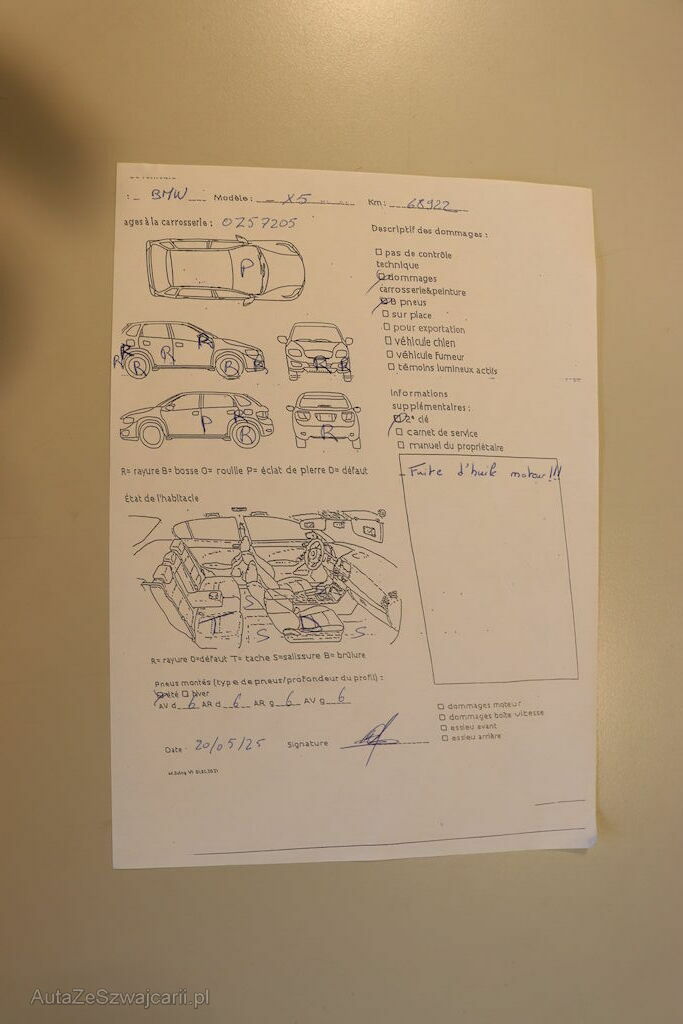 : BMW Modèle : X5 Km : 68922
ages à la carrosserie : 0257205
Descriptif des dommages :
pas de contrôle
technique
dommages
carrosserie&peinture
8 pneus
sur place
pour exportation
véhicule chien
véhicule fumeur
témoins lumineux actifs
P
R R R R R B R
R R
P R B
R
Informations
supplémentaires :
2e clé
carnet de service
manuel du propriétaire
R= rayure B= bosse O= rouille P= éclat de pierre D= défaut
Fuite d'huile moteur!!!
État de l'habitacle
S
T S D S
R= rayure D=défaut T= tache S=salissure B= brûlure
Pneus montés (type de pneus/profondeur du profil) :
été hiver
AV d 6 AR d 6 AR g 6 AV g 6
dommages moteur
dommages boîte vitesse
essieu avant
essieu arrière
Date 20/05/25 Signature
AutaZeSzwajcarii.pl